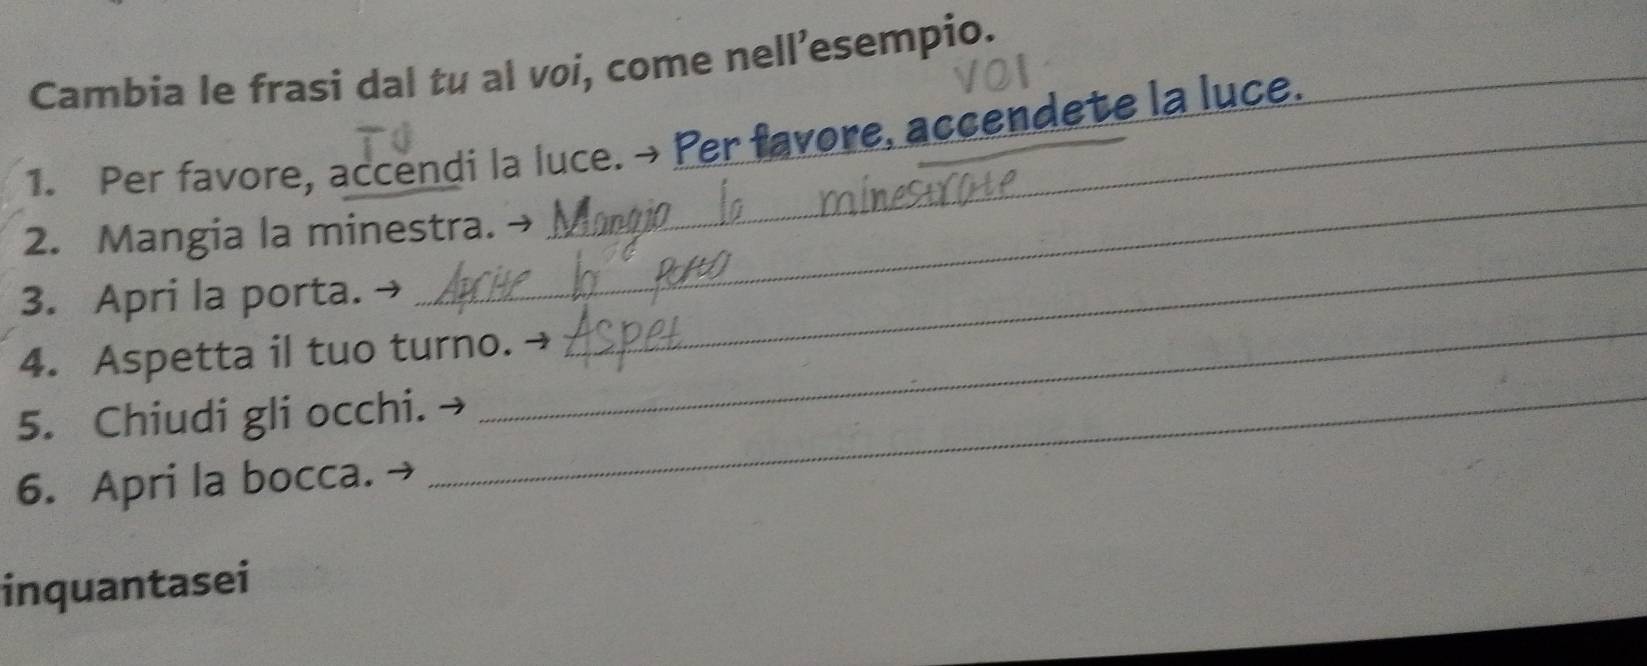 Cambia le frasi dal tu al voi, come nell'esempio.
TU VOI
1. Per favore, accendi la luce. → Per favore, accendete la luce.
2. Mangia la minestra. → Mangia la minestrate
3. Apri la porta. → Aprite la porta
4. Aspetta il tuo turno. → Aspet
5. Chiudi gli occhi. →
6. Apri la bocca. →
inquantasei